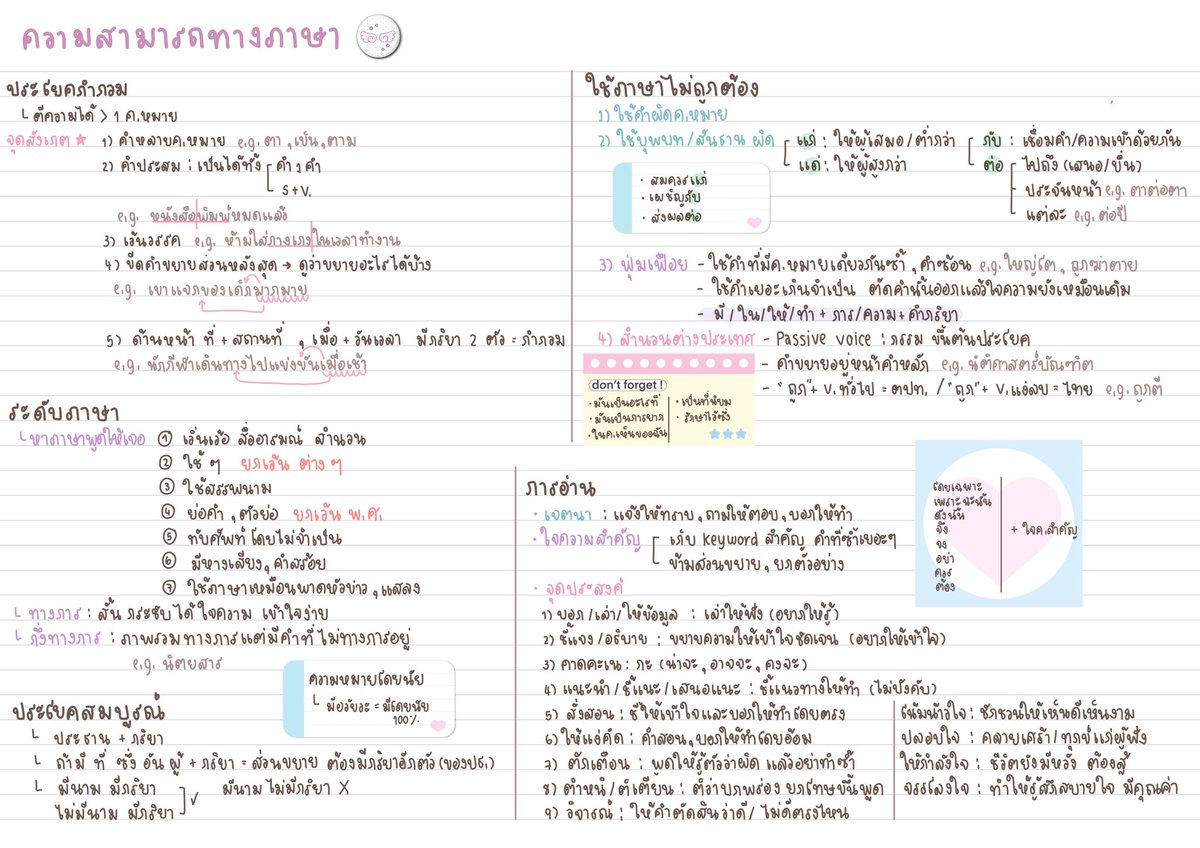 ความสามารถทางภาษา
ประโยคกำกวม
└ ตีความได้ > 1 ค.หมาย
จุดสังเกต ★ 1) คำหลายค.หมาย e.g. ตา , เป็น , ตาม
2) คำประสม ; เป็นได้ทั้ง คำ 1 คำ
S+V.
e.g. หนังสือพิมพ์หมดแล้ว
3) เว้นวรรค e.g. ห้ามใส่กางเกงในเวลาทำงาน
4) ขีดคำขยายส่วนหลังสุด → ดูว่าขยายอะไรได้บ้าง
e.g. เขาแจกของเด็กมากมาย
5) ด้านหน้า ที่ + สถานที่ , เมื่อ + วันเวลา มีกริยา 2 ตัว = กำกวม
e.g. นักกีฬาเดินทางไปแข่งขันเมื่อเช้า
ระดับภาษา
└ หาภาษาพูดให้เจอ ① เว่นเว้อ สื่ออารมณ์ สำนวน
② ใช้ ๆ ยกเว้น ต่าง ๆ
③ ใช้สรรพนาม
④ ย่อคำ , ตัวย่อ ยกเว้น พ.ศ.
⑤ ทับศัพท์ โดยไม่จำเป็น
⑥ มีหางเสียง , คำสร้อย
⑦ ใช้ภาษาเหมือนพาดหัวข่าว , แสลง
└ ทางการ : สั้น กระชับ ได้ใจความ เข้าใจง่าย
└ กึ่งทางการ : ภาพรวมทางการแต่มีคำที่ไม่ทางการอยู่
e.g. นิตยสาร
ความหมายโดยนัย
└ มีอวัยวะ = มีโดยนัย
100%
ประโยคสมบูรณ์
└ ประธาน + กริยา
└ ถ้ามี ที่ ซึ่ง อัน ผู้ + กริยา = ส่วนขยาย ต้องมีกริยาอีกตัว (ของปธ.)
└ มีนาม มีกริยา ✓ มีนาม ไม่มีกริยา X
ไม่มีนาม มีกริยา
ใช้ภาษาไม่ถูกต้อง
1) ใช้คำผิดค.หมาย
2) ใช้บุพบท / สันธาน ผิด
แก่ : ให้ผู้เสมอ / ต่ำกว่า
แด่ : ให้ผู้สูงกว่า
กับ : เชื่อมคำ/ความเข้าด้วยกัน
ต่อ ไปถึง (เสนอ / ยื่น)
ประจันหน้า e.g. ตาต่อตา
แต่ละ e.g. ต่อปี
· สมควรแก่
· เผชิญกับ
· ส่งผลต่อ
3) ฟุ่มเฟือย - ใช้คำที่มีค.หมายเดียวกันซ้ำ , คำซ้อน e.g. ใหญ่โต , ถูกฆ่าตาย
- ใช้คำเยอะเกินจำเป็น ตัดคำนั้นออกแล้วใจความยังเหมือนเดิม
- มี / ใน / ให้ / ทำ + การ / ความ + คำกริยา
4) สำนวนต่างประเทศ - Passive voice : กรรม ขึ้นต้นประโยค
- คำขยายอยู่หน้าคำหลัก e.g. นิติศาสตร์บัณฑิต
- "ถูก" + V. ทั่วไป = ตปท. / "ถูก" + V. แง่ลบ = ไทย e.g. ถูกตี
don't forget !
· มันเป็นอะไรที่
· มันเป็นการยาก
· ในค.เห็นของฉัน
· เป็นที่นิยม
· รักษาไว้ซึ่ง
การอ่าน
· เจตนา : แจ้งให้ทราบ , ถามให้ตอบ , บอกให้ทำ
· ใจความสำคัญ เก็บ keyword สำคัญ คำที่ซ้ำเยอะๆ
ข้ามส่วนขยาย , ยกตัวอย่าง
โดยเฉพาะ
เพราะฉะนั้น
ดังนั้น
จึง
จง
อย่า
ควร
ต้อง
+ ใจค.สำคัญ
· จุดประสงค์
1) บอก / เล่า / ให้ข้อมูล : เล่าให้ฟัง (อยากให้รู้)
2) ชี้แจง / อธิบาย : ขยายความให้เข้าใจชัดเจน (อยากให้เข้าใจ)
3) คาดคะเน : กะ (น่าจะ , อาจจะ , คงจะ)
4) แนะนำ / ชี้แนะ / เสนอแนะ : ชี้แนวทางให้ทำ (ไม่บังคับ)
5) สั่งสอน : ชี้ให้เข้าใจและบอกให้ทำโดยตรง
6) ให้แง่คิด : คำสอน , บอกให้ทำโดยอ้อม
7) ตักเตือน : พูดให้รู้ตัวว่าผิด แล้วอย่าทำซ้ำ
8) ตำหนิ / ติเตียน : ติว่าบกพร่อง ยกโทษขึ้นพูด
9) วิจารณ์ : ให้คำตัดสินว่าดี / ไม่ดีตรงไหน
โน้มน้าวใจ : ชักชวนให้เห็นดีเห็นงาม
ปลอบใจ : คลายเศร้า / ทุกข์แก่ผู้ฟัง
ให้กำลังใจ : ชีวิตยังมีหวัง ต้องสู้
จรรโลงใจ : ทำให้รู้สึกสบายใจ มีคุณค่า